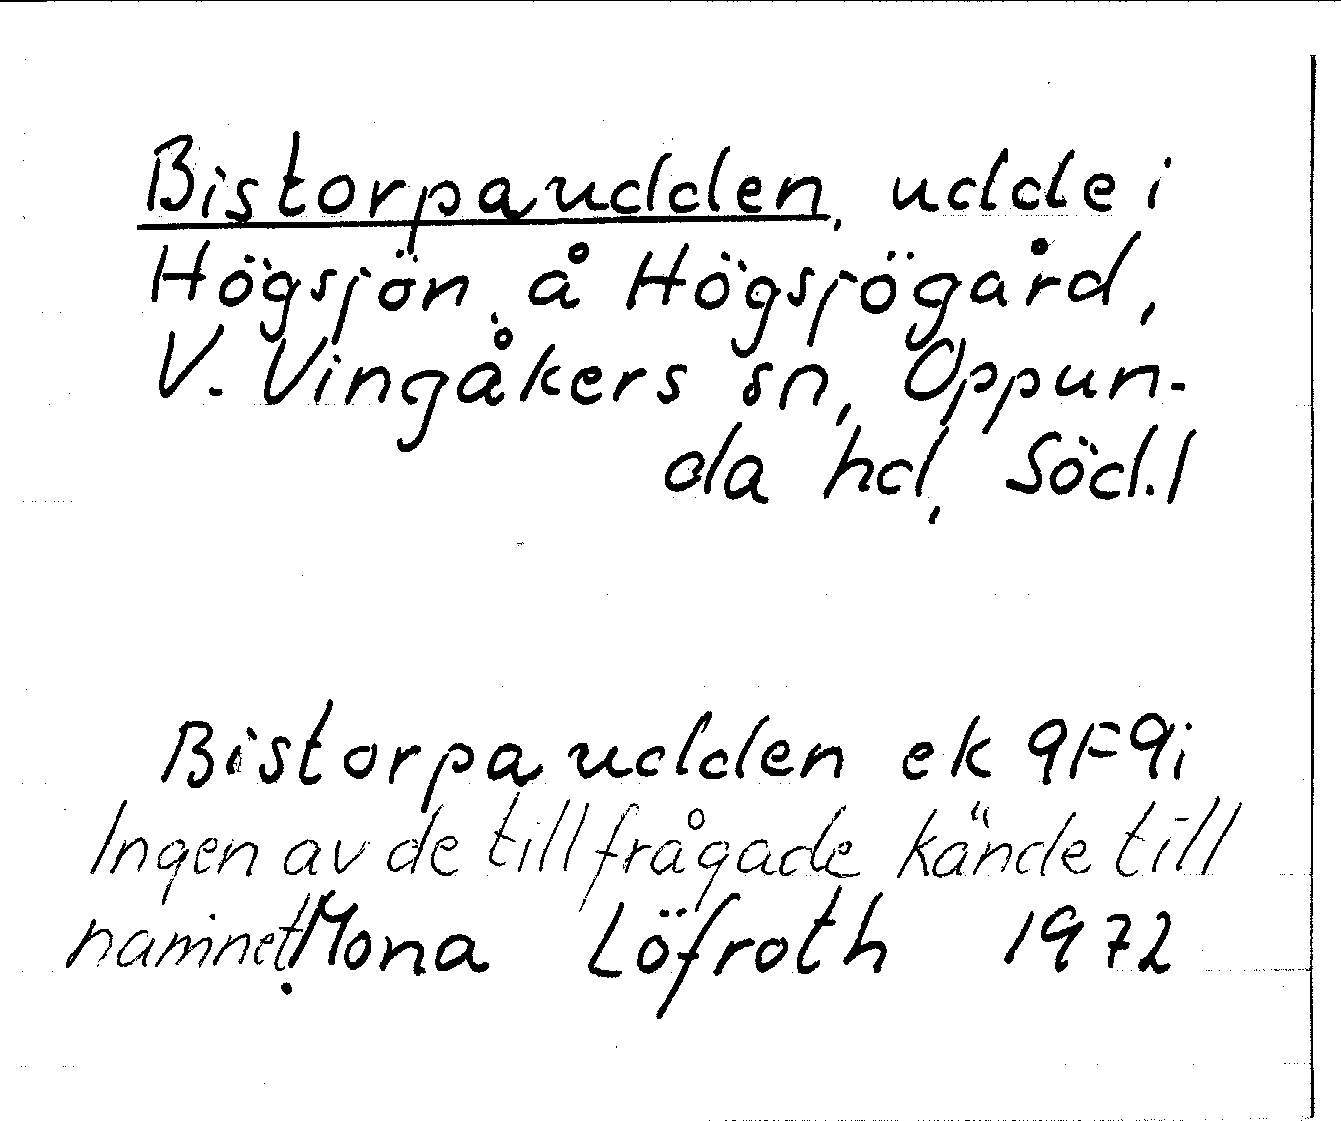 Bistorpaudden, udde i
Högsjön, å Högsjögård,
V. Vingåkers sn, Oppun-
da hd, Söd.l
Bistorpaudden ek 9F9i
Ingen av de tillfrågade kände till
namnet.
Mona Löfroth 1972